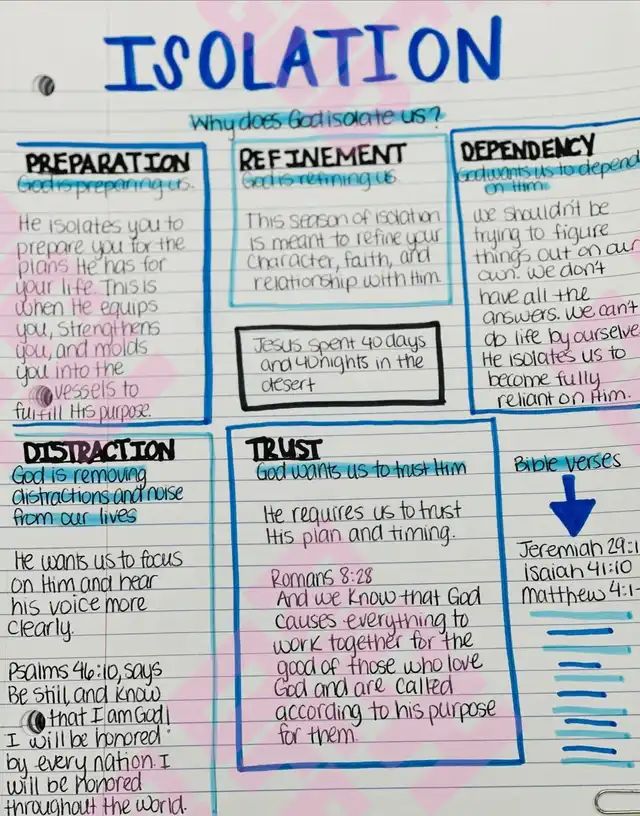 ISOLATION
Why does God isolate us?
PREPARATION
God is preparing us.
He isolates you to
prepare you for the
plans He has for
your life. This is
when He equips
you, strengthens
you, and molds
you into the
vessels to
fulfill His purpose.
REFINEMENT
God is refining us
This season of isolation
is meant to refine your
character, faith, and
relationship with Him.
Jesus spent 40 days
and 40 nights in the
desert
DEPENDENCY
God wants us to depend
on Him.
We shouldn't be
trying to figure
things out on our
own. We don't
have all the
answers. We can't
do life by ourselve
He isolates us to
become fully
reliant on Him.
DISTRACTION
God is removing
distractions and noise
from our lives
He wants us to focus
on Him and hear
his voice more
clearly.
Psalms 46:10, says
Be still, and know
that I am God!
I will be honored
by every nation. I
will be honored
throughout the world.
TRUST
God wants us to trust Him
He requires us to trust
His plan and timing.
Romans 8:28
And we know that God
causes everything to
work together for the
good of those who love
God and are called
according to his purpose
for them.
Bible verses
Jeremiah 29:1
Isaiah 41:10
Matthew 4:1-